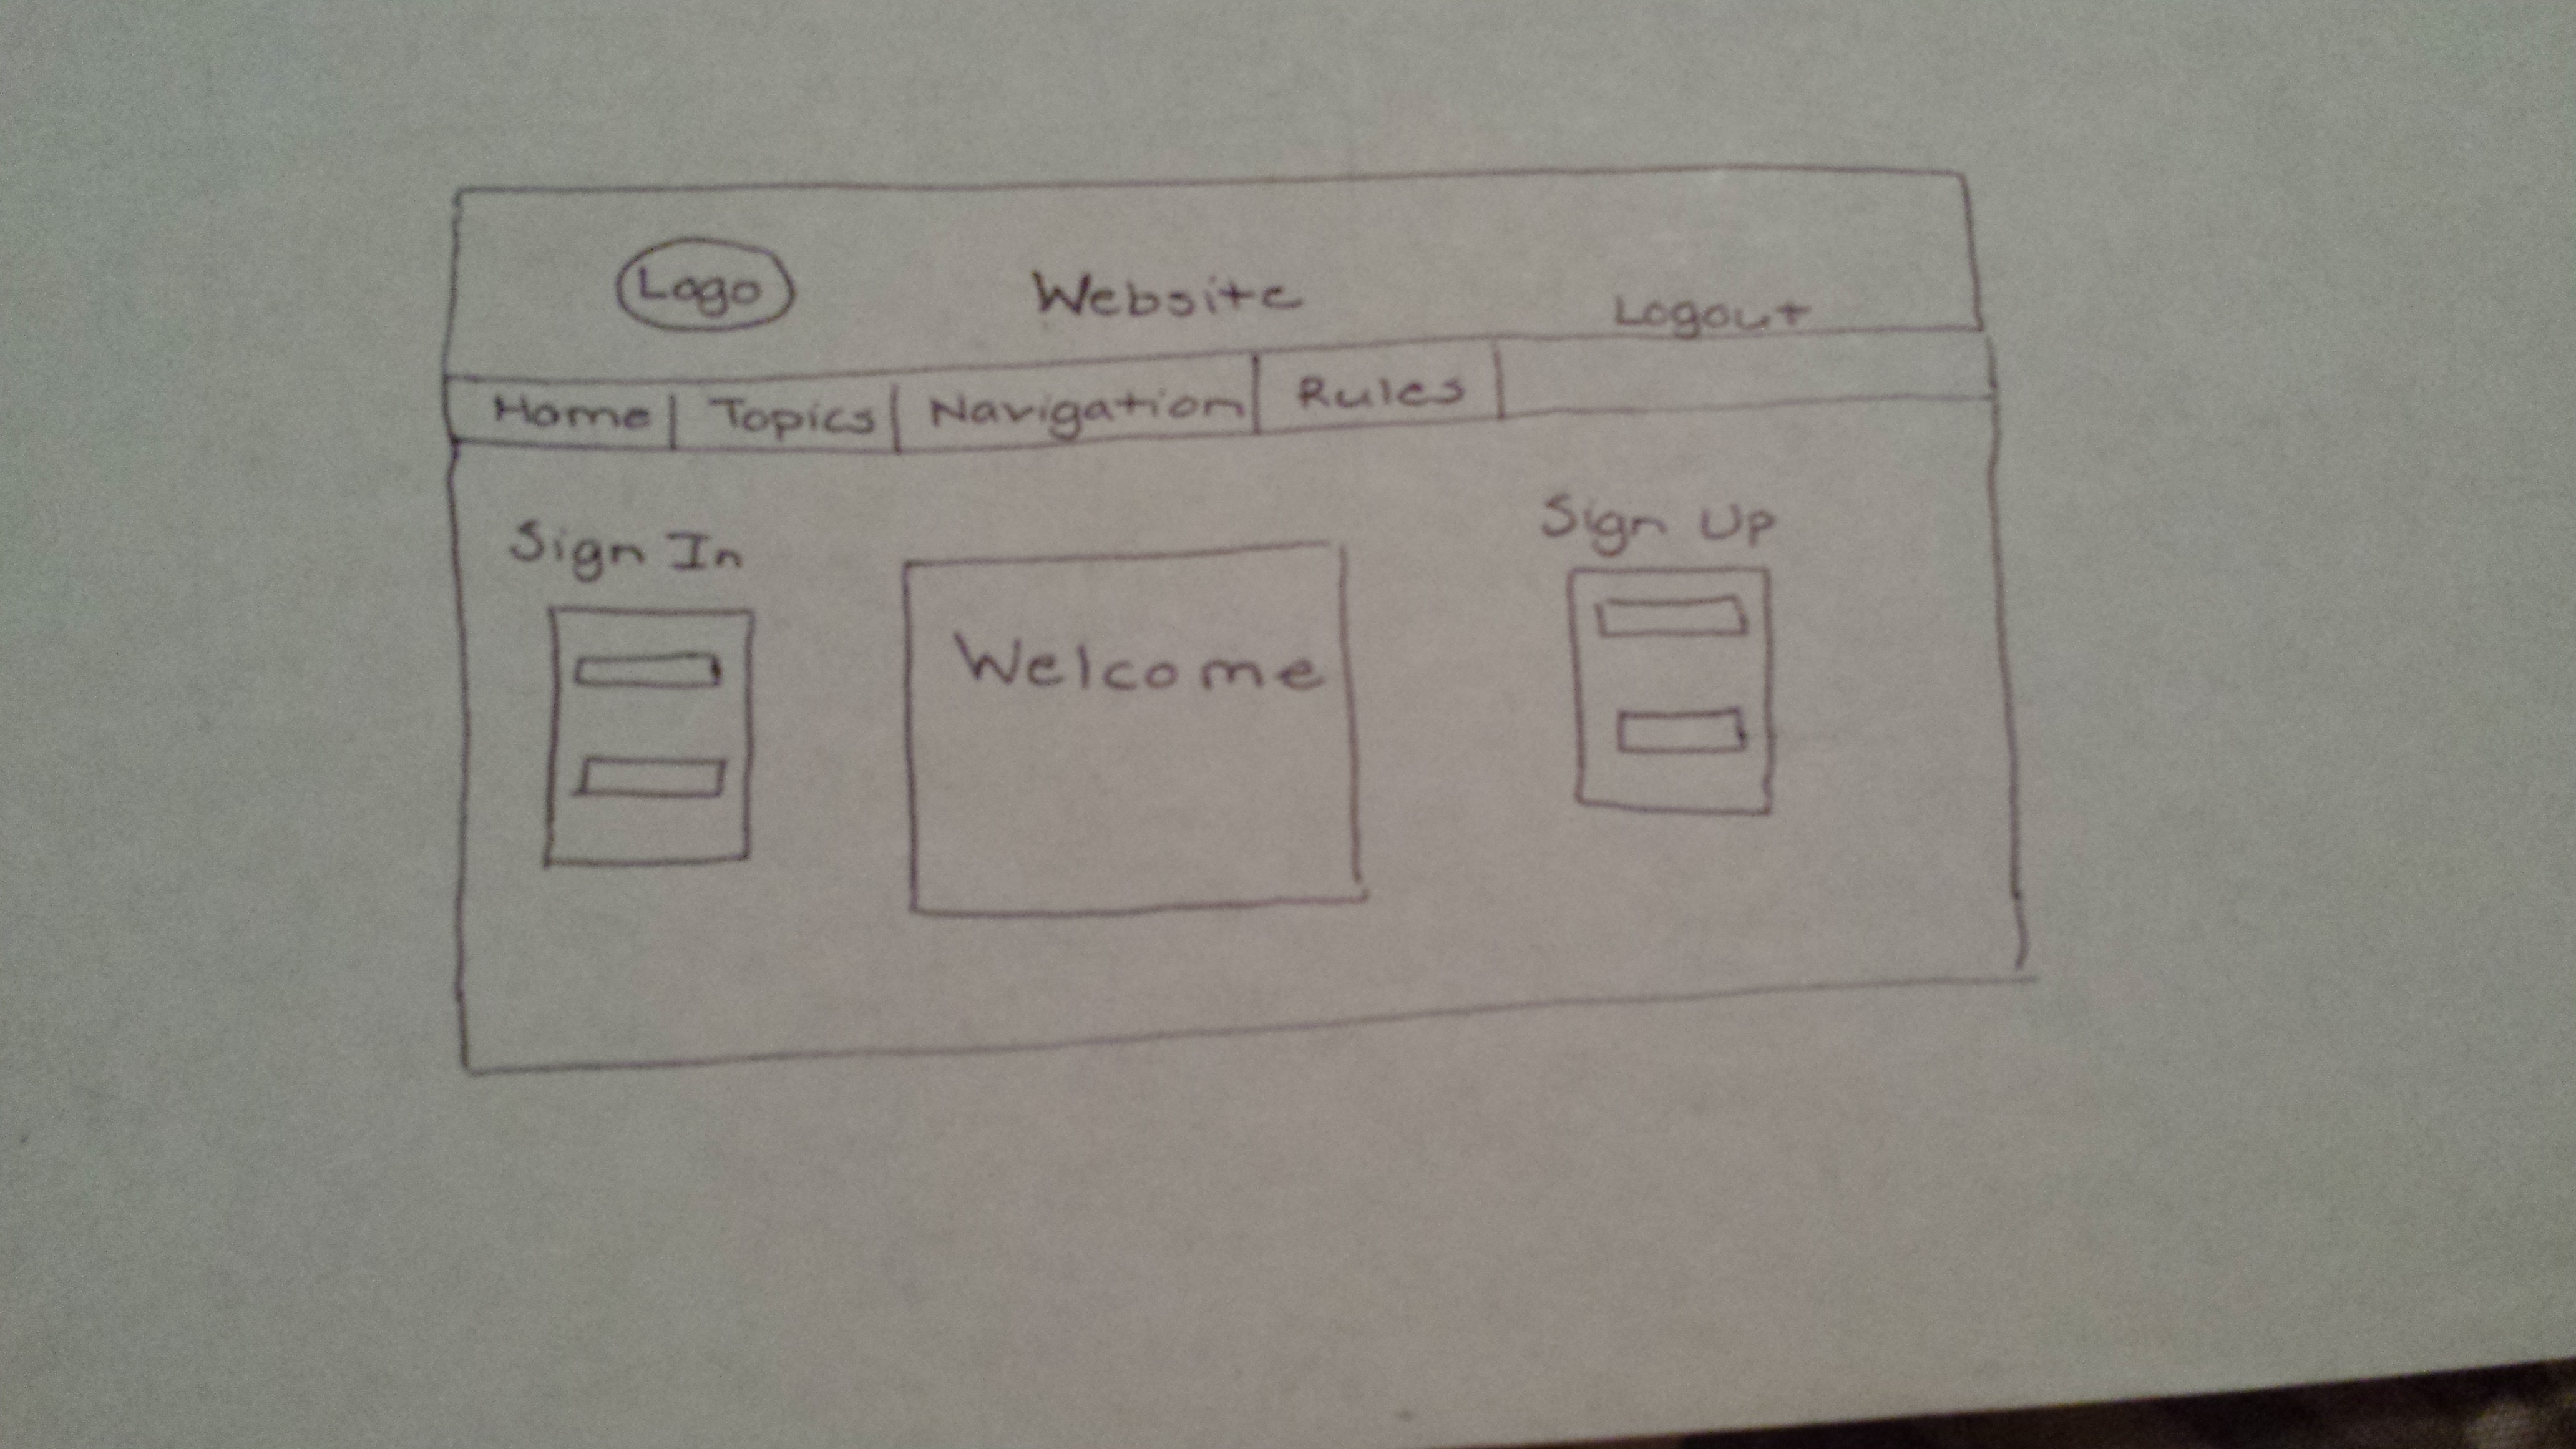 Logo Website Logout
Home Topics Navigation Rules
Sign In Sign Up
Welcome